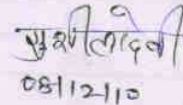 सुशीलादेवी
08/12/10